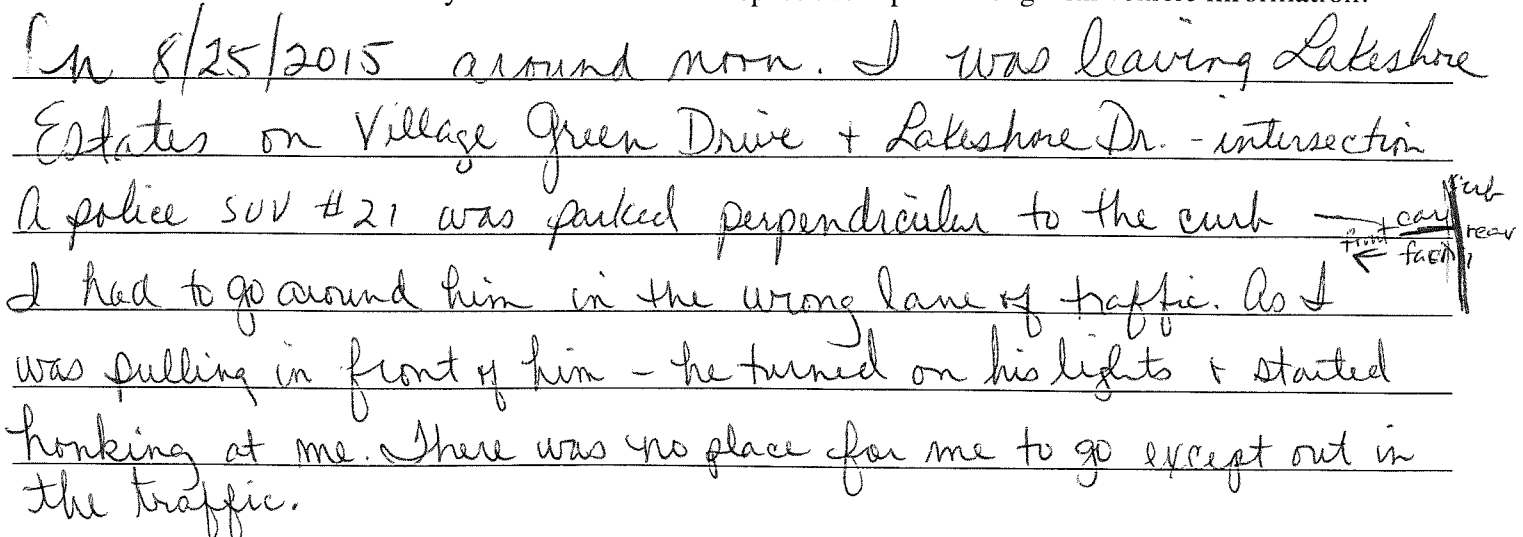 vehicle information.
On 8/25/2015 around noon. I was leaving Lakeshore
Estates on Village Green Drive + Lakeshore Dr. - intersection
A police SUV #21 was parked perpendicular to the curb
curb
car rear
front facing
I had to go around him in the wrong lane of traffic. As I
was pulling in front of him - he turned on his lights + started
honking at me. There was no place for me to go except out in
the traffic.